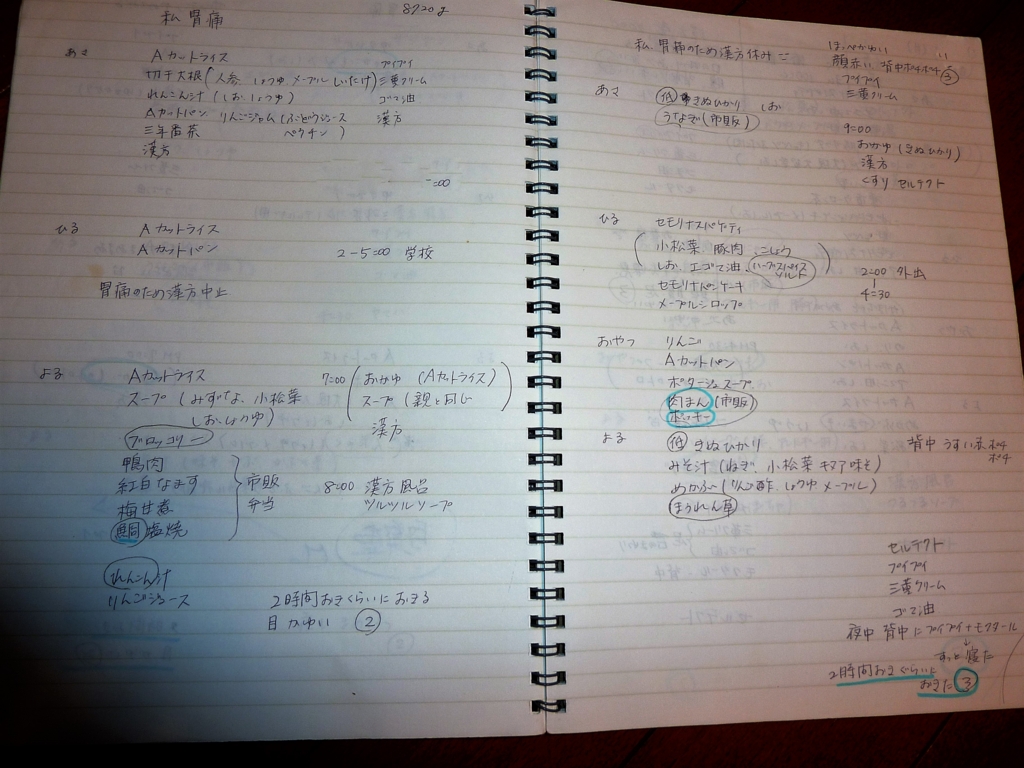 私 胃痛
8720g
あさ
Aカットライス
切干大根(人参、しょうゆ、メープル しいたけ)
れんこん汁(しお、しょうゆ)
Aカットパン りんごジャム(ぶどうジュース ペクチン)
三年番茶
漢方
プイプイ
三黄クリーム
ゴマ油
漢方
ひる
Aカットライス
Aカットパン
2-5:00 学校
胃痛のため漢方中止
よる
Aカットライス
スープ(みずな、小松菜
しお、しょうゆ)
ブロッコリー
鴨肉
紅白なます
梅甘煮
鯛塩焼
市販
弁当
7:00 おかゆ(Aカットライス)
スープ(親と同じ)
漢方
8:00 漢方風呂
ツルツルソープ
れんこん汁
りんごジュース
2時間おきくらいにおきる
目かゆい ②
私、胃痛のため漢方休み
ほっぺかゆい
顔赤い 背中ポチポチ ③
プイプイ
三黄クリーム
あさ
低 きぬひかり しお
うなぎ(市販)
9:00
おかゆ(きぬひかり)
漢方
くすり セルテクト
ひる
セモリナスパゲティ
小松菜 豚肉 こしょう
しお、エゴマ油、ハーブスパイスソルト
セモリナパンケーキ
メープルシロップ
2:00 外出
4:30
おやつ
りんご
Aカットパン
ポタージュスープ
肉まん(市販)
よる
低 きぬひかり
みそ汁(ねぎ、小松菜 キヌア味そ)
めかぶ(りんご酢 しょうゆ メープル)
ほうれん草
背中 うすい赤ポチ
ポチ
セルテクト
プイプイ
三黄クリーム
ゴマ油
夜中 背中にプイプイ+モクタール
↓
ずっと寝た
2時間おきくらいに
おきた ③